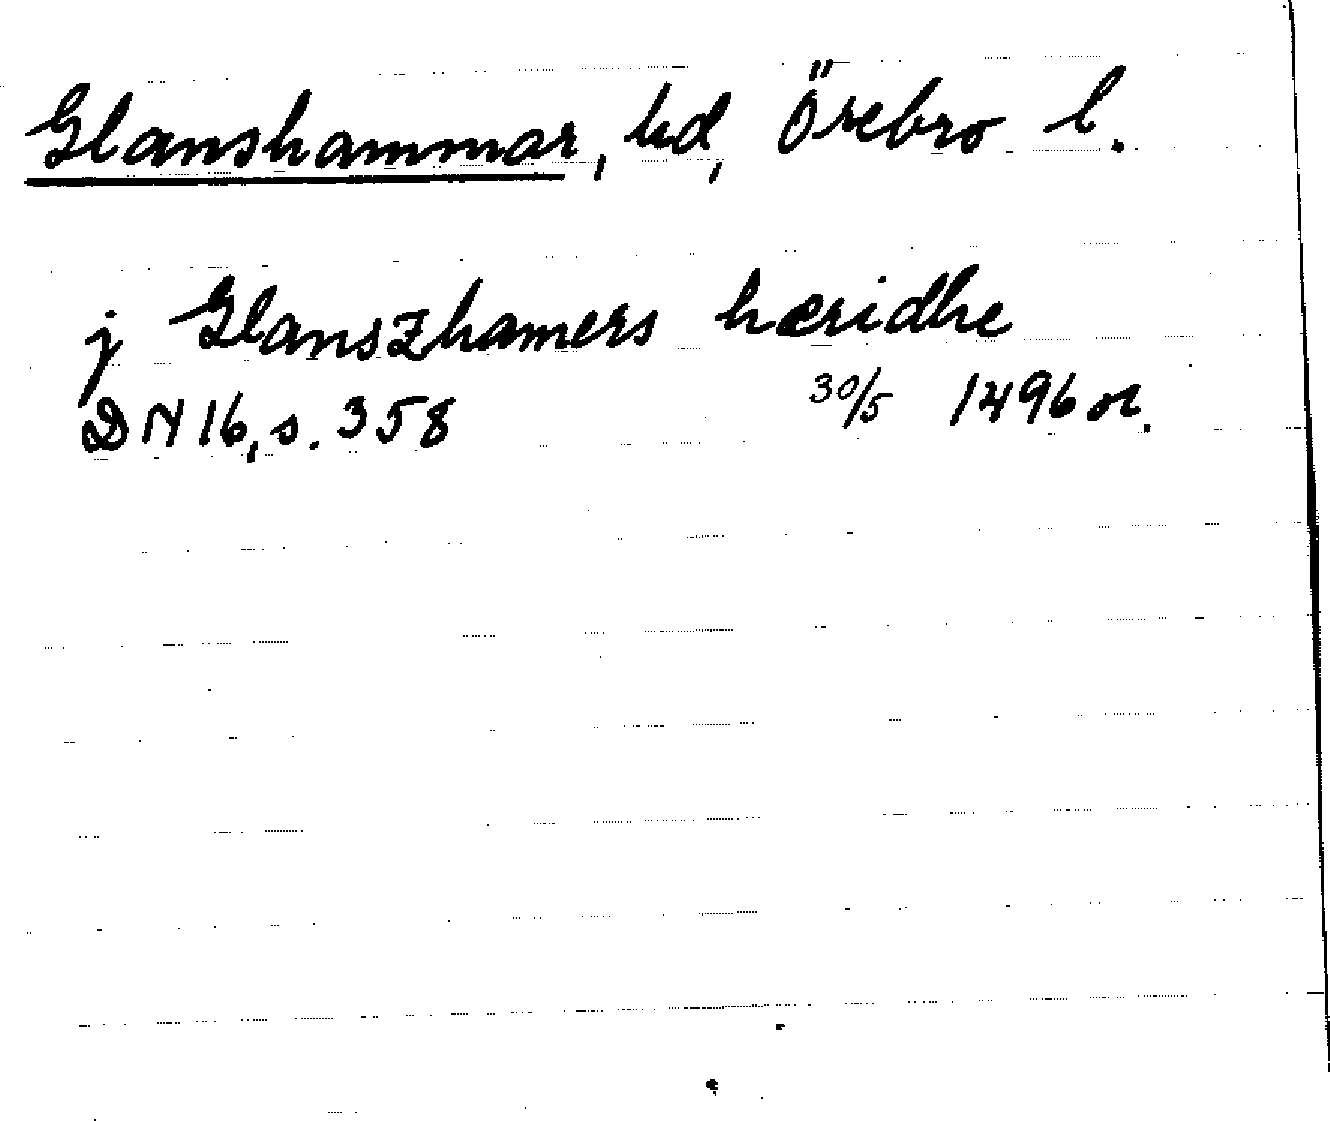 Glanshammar, hd, Örebro l.
j Glanszhamers hæridhe
DN 16, s. 358 30/5 1496 or.